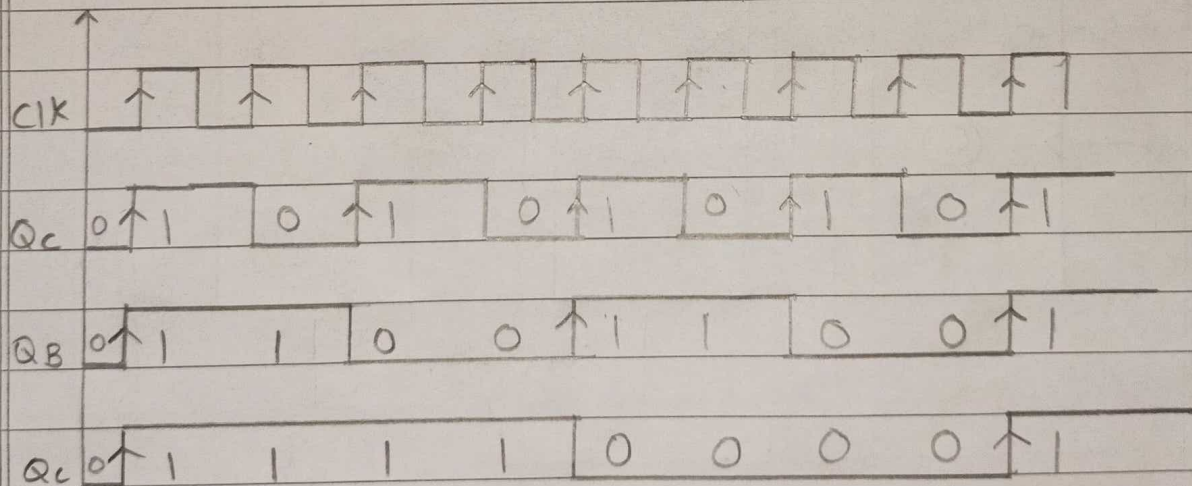 Clk
Qc 0 1 0 1 0 1 0 1 0 1
QB 0 1 1 0 0 1 1 0 0 1
Qc 0 1 1 1 1 0 0 0 0 1